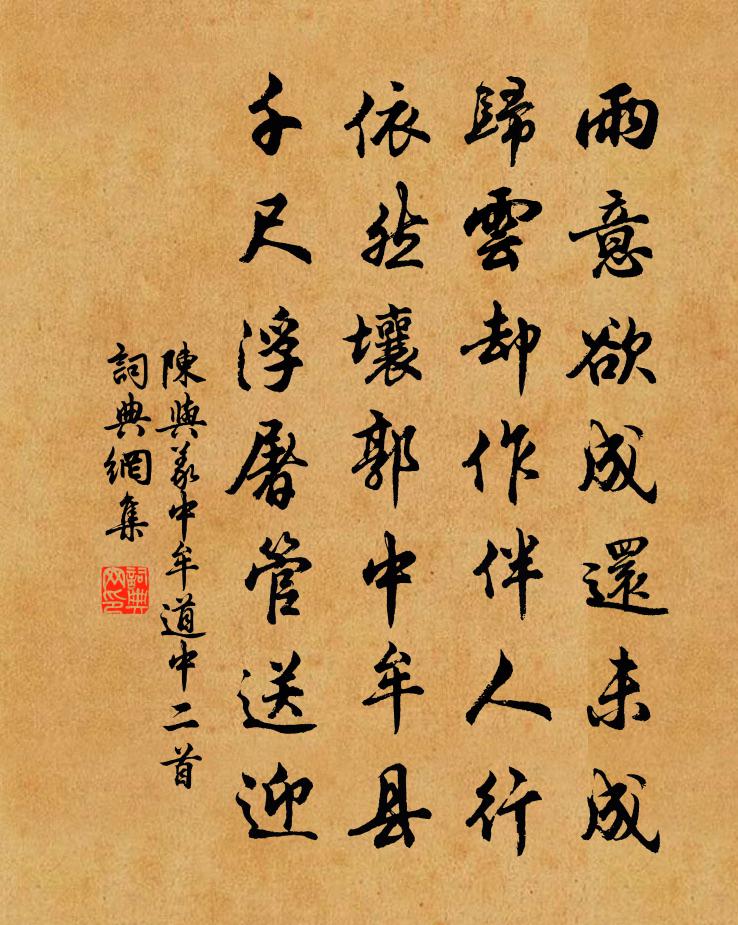 雨意欲成還未成
歸雲却作伴人行
依然壞郭中牟县
千尺浮屠管送迎
陳與義中牟道中二首
詞典網集
詞典网印